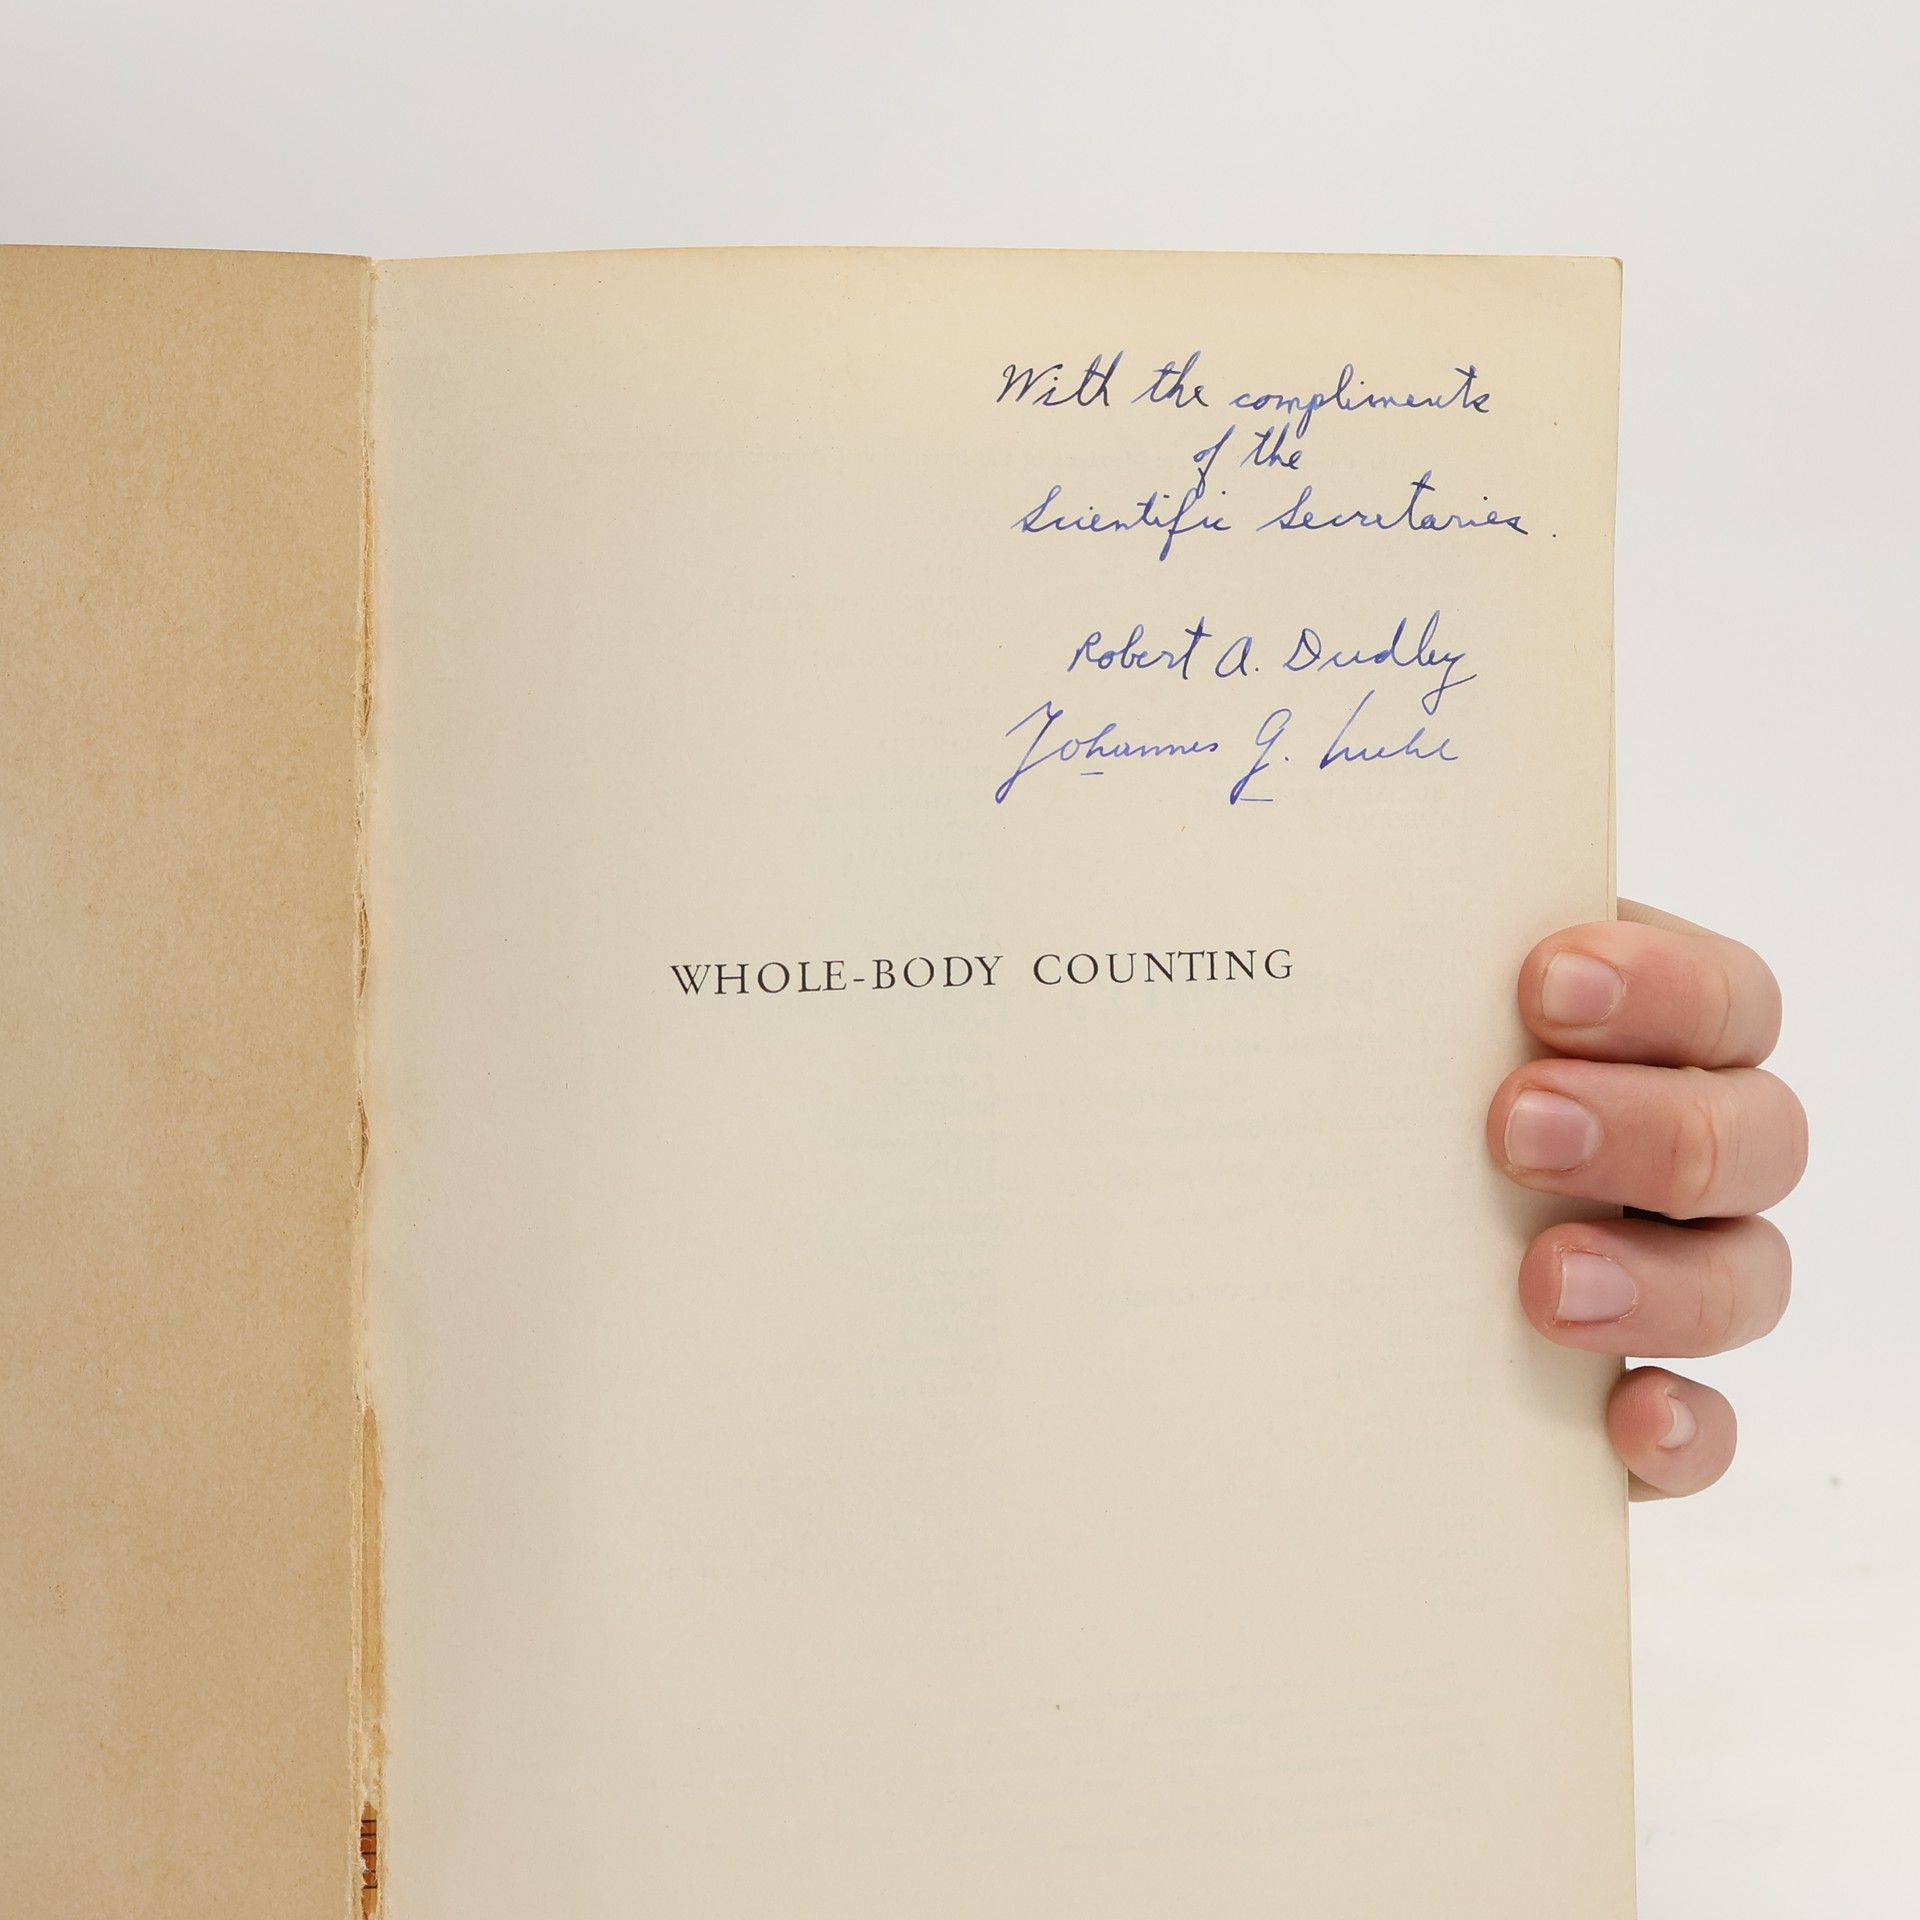 With the compliments
of the
Scientific Secretaries.
Robert A. Dudley
Johannes G.
WHOLE-BODY COUNTING